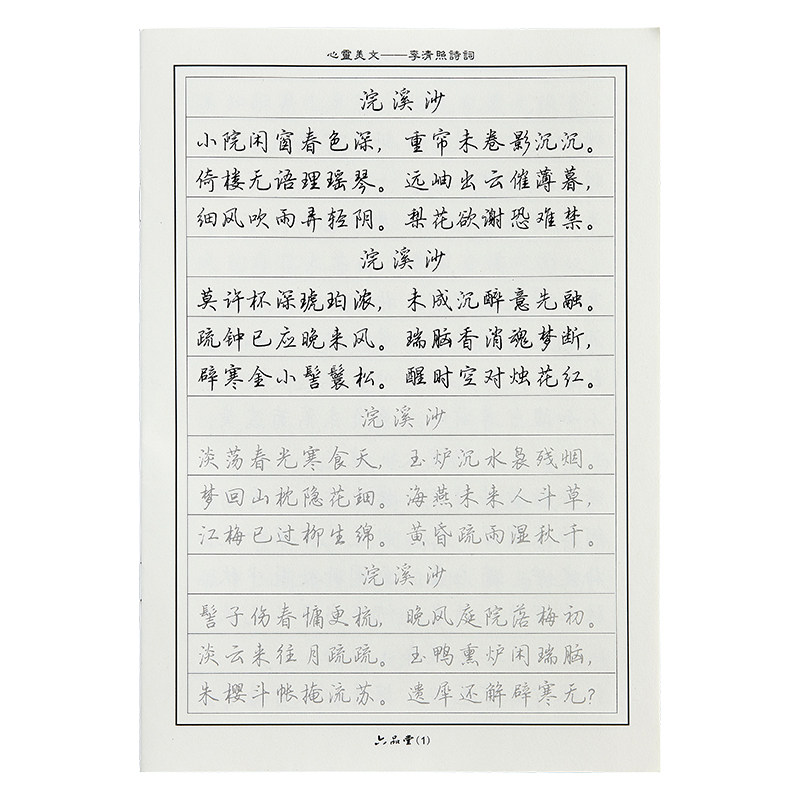 心靈美文——李清照詩詞
浣溪沙
小院闲窗春色深，重帘未卷影沉沉。
倚楼无语理瑶琴。远岫出云催薄暮，
细风吹雨弄轻阴。梨花欲谢恐难禁。
浣溪沙
莫许杯深琥珀浓，未成沉醉意先融。
疏钟已应晚来风。瑞脑香消魂梦断，
辟寒金小髻鬟松。醒时空对烛花红。
浣溪沙
淡荡春光寒食天，玉炉沉水袅残烟。
梦回山枕隐花钿。海燕未来人斗草，
江梅已过柳生绵。黄昏疏雨湿秋千。
浣溪沙
髻子伤春慵更梳，晚风庭院落梅初。
淡云来往月疏疏。玉鸭熏炉闲瑞脑，
朱樱斗帐掩流苏。遗犀还解辟寒无？
六品堂(1)